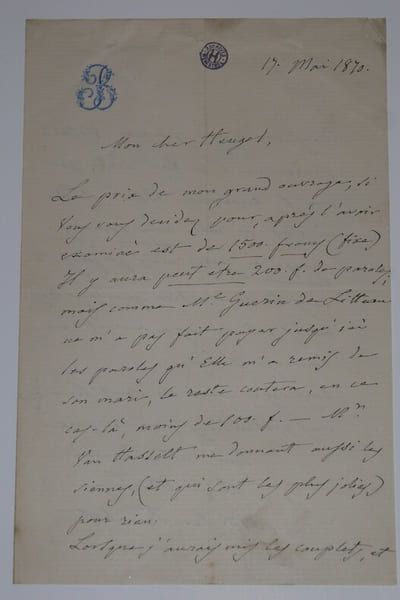 17. Mai 1870.
Mon cher Heugel,
Le prix de mon grand ouvrage, si
vous vous décidez pour, après l'avoir
examiné est de 1500. francs (fixe)
Il y aura peut être 200 f. de paroles,
mais comme Mme Guerin de Litteau
ne m'a pas fait payer jusqu'ici
les paroles qu'Elle m'a remis de
son mari, le reste coutera, en ce
cas-là, moins de 100. f. — Mr.
Van Hasselt me donnant aussi les
siennes, (et qui sont les plus jolies)
pour rien.
Lorsque j'aurais mis les couplets, et